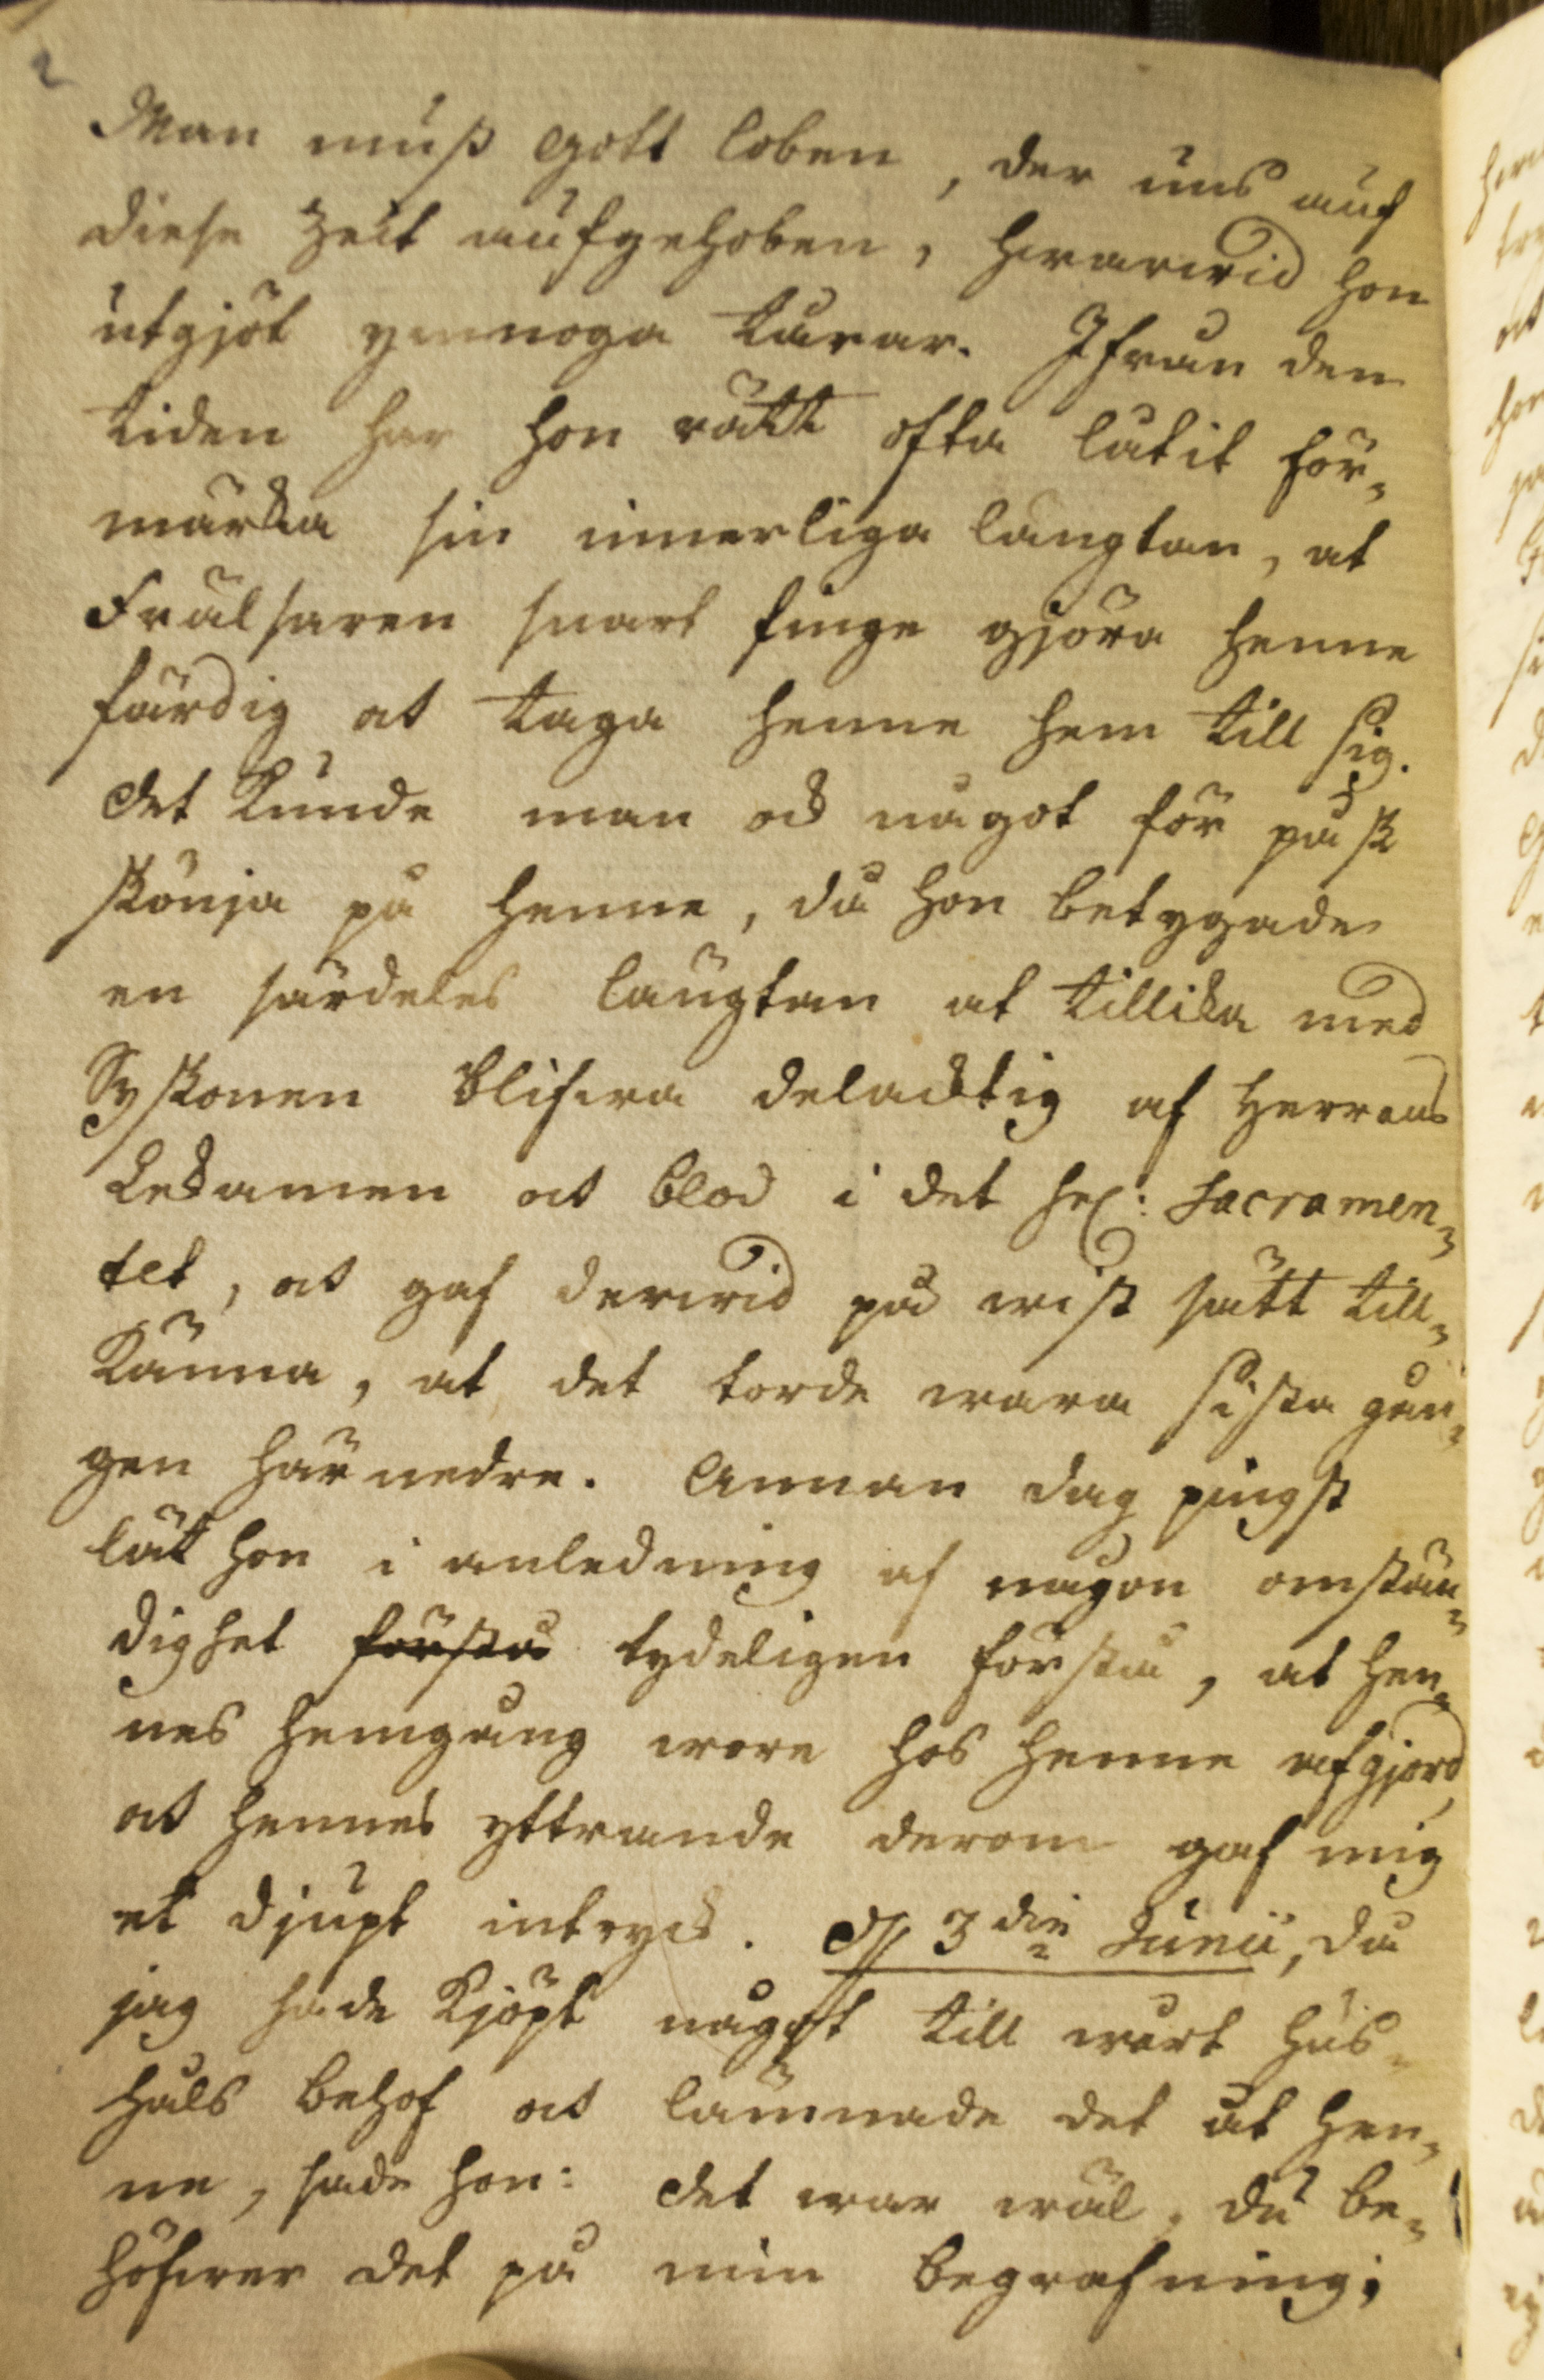 2
Man muß Gott loben, der uns auf
diese Zeit aufgehoben, hwarwid hon
utgjöt ymnoga tårar. Ifrån den
tiden har hon rätt ofta låtit för-
märka sin innerliga längtan, at
Frälsaren snart finge gjöra henne
färdig at taga henne hem till sig.
Det kunde man ock något för påsk
skönja på henne, då hon betygade
en särdeles längtan at tillika med
Syskonen blifwa delacktig af Herrans
Lekamen och blod i det hel: Sacramen-
tet, och gaf derwid på wist sätt till-
känna, at det torde wara sista gån-
gen härnedre. Annan dag pingst
lät hon i anledning af någon omstän-
dighet förstå tydeligen förstå, at hen-
nes hemgång wore hos henne afgjord,
och hennes yttrande derom gaf mig
et djupt intryck. D. 3die Junii, då
jag hade kjöpt något till wårt hus-
håls behof och lämnade det åt hen-
ne, sade hon: Det war wäl, du be-
höfwer det på min begrafning;